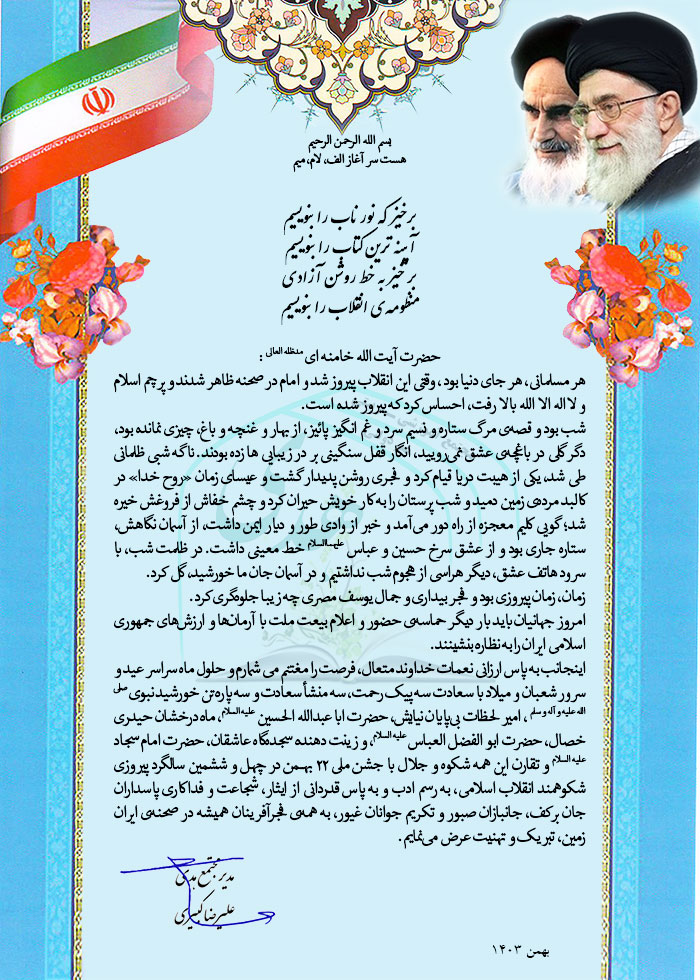 بسم الله الرحمن الرحیم
هست سر آغاز الف، لام، میم
برخیز که نور ناب را بنویسیم
آینه ترین کتاب را بنویسیم
برخیز به خط روشن آزادی
منظومه‌ی انقلاب را بنویسیم
حضرت آیت الله خامنه ای مدظله العالی :
هر مسلمانی، هر جای دنیا بود، وقتی این انقلاب پیروز شد و امام در صحنه ظاهر شدند و پرچم اسلام
و لا اله الا الله بالا رفت، احساس کرد که پیروز شده است.
شب بود و قصه‌ی مرگ ستاره و نسیم سرد و غم انگیز پائیز، از بهار و غنچه و باغ، چیزی نمانده بود،
دگر گلی در باغچه‌ی عشق نمی رویید، انگار قفل سنگینی بر در زیبایی ها زده بودند. ناگه شبی ظلمانی
طی شد، یکی از هیبت دریا قیام کرد و فجری روشن پدیدار گشت و عیسای زمان «روح خدا» در
کالبد مرده‌ی زمین دمید و شب پرستان را به کار خویش حیران کرد و چشم خفاش از فروغش خیره
شد؛ گویی کلیم معجزه از راه دور می‌آمد و خبر از وادی طور و دیار ایمن داشت، از آسمان نگاهش،
ستاره جاری بود و از عشق سرخ حسین و عباس علیهماالسلام خط معینی داشت. در ظلمت شب، با
سرود هاتف عشق، دیگر هراسی از هجوم شب نداشتیم و در آسمان جان ما خورشید، گل کرد.
زمان، زمان پیروزی بود و فجر بیداری و جمال یوسف مصری چه زیبا جلوه‌گری کرد.
امروز جهانیان باید بار دیگر حماسه‌ی حضور و اعلام بیعت ملت با آرمان‌ها و ارزش‌های جمهوری
اسلامی ایران را به نظاره بنشینند.
اینجانب به پاس ارزانی نعمات خداوند متعال، فرصت را مغتنم می شمارم و حلول ماه سراسر عید و
سرور شعبان و میلاد با سعادت سه پیک رحمت، سه منشأ سعادت و سه پاره‌تن خورشید نبوی صلی
الله علیه و آله وسلم ، امیر لحظات بی‌پایان نیایش، حضرت ابا عبدالله الحسین علیه السلام، ماه درخشان حیدری
خصال، حضرت ابو الفضل العباس علیه السلام، و زینت دهنده سجده‌گاه عاشقان، حضرت امام سجاد
علیه السلام و تقارن این همه شکوه و جلال با جشن ملی ۲۲ بهمن در چهل و ششمین سالگرد پیروزی
شکوهمند انقلاب اسلامی، به رسم ادب و به پاس قدردانی از ایثار، شجاعت و فداکاری پاسداران
جان برکف، جانبازان صبور و تکریم جوانان غیور، به همه‌ی فجرآفرینان همیشه در صحنه‌ی ایران
زمین، تبریک و تهنیت عرض می‌نمایم.
مدیر مجتمع هدی
علیرضا کبیری
بهمن ۱۴۰۳